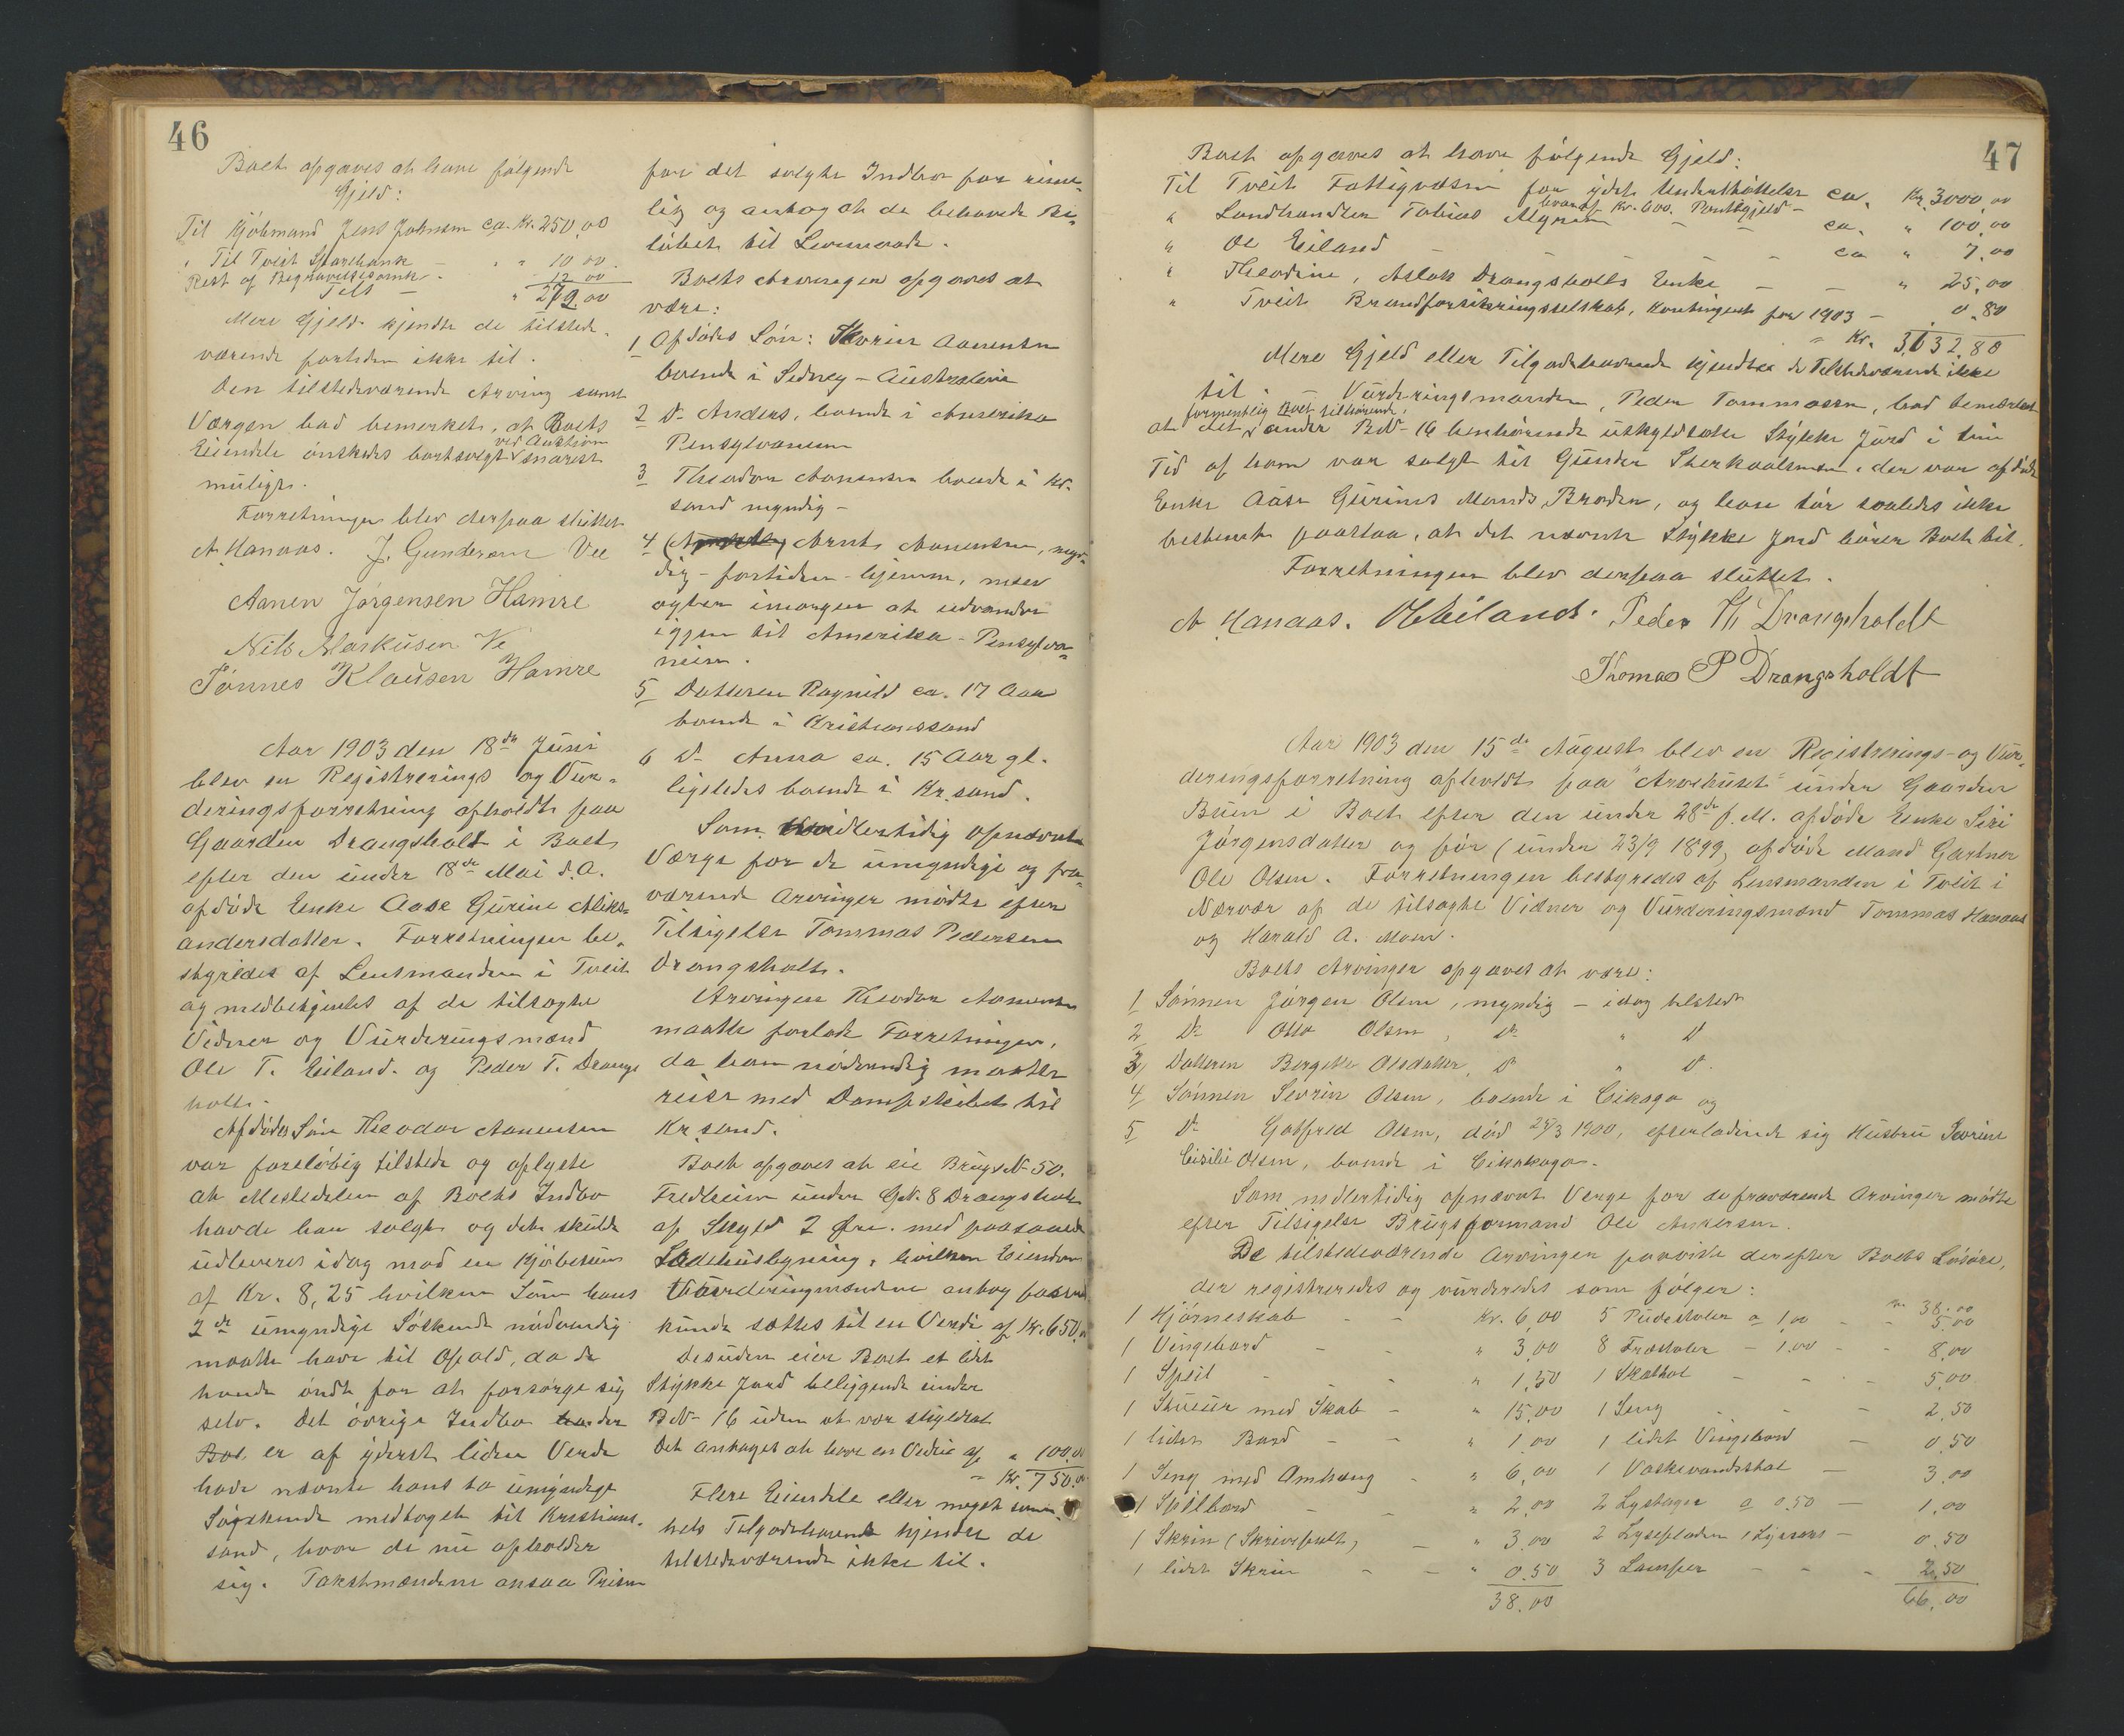 46
Boet opgaves at have følgende
Gjeld:
Til Kjøbmand Jens Johnsen ca. Kr. 250,00
" Til Tveit Sparebank - " " 10 00
Rest af Begravelsesomk. - 12 00
Tils - " 272.00
Mere Gjeld kjendte de tilstede-
værende fortiden ikke til.
Den tilstedeværende Arving samt
Værgen bad bemerket, at Boets
Eiendele ønskedes bortsolgt ved Auktion snarest
muligt.
Forretningen blev derpaa sluttet
A Hanaas. J. Gundersen Vee
Aanen Jørgensen Hamre
Nils Markusen Ve
Tønnes Klausen Hamre
Aar 1903 den 18de Juni
blev en Registrerings og Vur-
deringsforretning afholdt paa
Gaarden Drangsholt i Boet
efter den under 18de Mai d.A.
afdøde Enke Aase Gurine Aleks-
andersdatter. Forretningen be-
styredes af Lensmanden i Tveit
og medbetjentes af de tilsagte
Vidner og Vurderingsmænd
Ole T. Eiland. og Peder T. Drangs
holt.
Afdødes Søn Theodor Aanensen
var foreløbig tilstede og oplyste
at Mestedelen af Boets Indbo
havde han solgt og dette skulde
udleveres idag mod en Kjøbesum
af Kr. 8,25 hvilken Sum hans
2de umyndige Søskende nødvendig
maatte have til Ophold, da de
havde ondt for at forsørge sig
selv. Det øvrige Indbo under
Boet er af yderst liden Verdi
hade nævnte hans to umyndige
Søskende medtaget til Kristian-
sand, hvor de nu opholder
sig. Takstmændene ansaa Prisen
for det solgte Indbo for rime-
lig og antog at de behøvede Be-
løbet til Livsnærode.
Boets Arvinger opgaves at
være:
1 Afdødes Søn: Severin Aanensen
boende i Sidney - Australien
2 Do Anders, boende i Amerika
Pensylvanien
3 Theodor Aanensen boende i Kr.
sand myndig -
4 Arnt Aanensen, myn-
dig - fortiden - hjemme, men
agter imorgen at udvandre
igjen til Amerika - Pensylva-
nien.
5 Datteren Ragnild ca. 17 Aar
boende i Kristianssand
6 Do Anna ca. 15 Aar gl.
ligeledes boende i Kr.sand.
Som midlertidig opnævnt
Værge for de umyndige og fra-
værende Arvinger mødte efter
Tilsigelse Tommas Pedersen
Drangsholt.
Arvingen Theodor Aanensen
maatte forlate Forretningen,
da han nødvendig maatte
reise med Dampskibet til
Kr.sand.
Boet opgaves at eie BrugsN 50.
Fredheim under GN. 8 Drangsholt
af Skyld 2 Øre. med paastaaende
Ladehusbygning, hvilken Eiendom
Vurderingsmændene antog paastod
kunde sættes til en Verdi af Kr. 650,00
Desuden eier Boet et lidet
Stykke Jord beliggende under
BN- 16 uden at vær skyldsat
Det antages at have en Verdi af " 100,00
- Kr. 750,00
Flere Eiendele eller noget som
helst Tilgodehavende kjender de
tilstedeværende ikke til.
47
Boet opgaves at have følgende Gjeld:
Til Tveit Fattigvæsen for ydet Understøttelse ca. Kr. 3000,00
hvoraf Kr. 600. Pantegjeld -
" Landhandler Tobias - - ca. " 100,00
" Ole Eiland - - - ca " 7,00
" Theodine, Aslak Drangsholts Enke - - " 25,00
" Tveit Brandforsikringsselskab, Kontingent for 1903 - 0,80
- Kr. 3132,80
Mere Gjeld eller Tilgodehavende kjendte de Tilstedeværende ikke
til. - Vurderingsmanden, Peder Tommassen, bad bemærket
formentlig Boet tilhørende,
at det under BN- 16 henhørende uskyldsatte Stykke Jord i sin
Tid af ham var solgt til Gunder Sterkoalsen, der var afdøde
Enke Aase Gurines Mands Broder, og han tør saaledes ikke
bestemt paastaa, at det nævnte Stykke Jord hører Boet til.
Forretningen blev derpaa sluttet.
A Hanaas. O Eiland. Peder Th Drangsholdt
Thomas P Drangsholdt
Aar 1903 den 15de August blev en Registrerings- og Vur-
deringsforretning afholdt paa "Arvehuset" under Gaarden
Buen i Boet efter den under 28de f.M. afdøde Enke Siri
Jørgensdatter og før (under 23/9 1899) afdøde Mand Gartner
Ole Olsen. Forretningen bestyredes af Lensmanden i Tveit i
Nærvær af de tilsagte Vidner og Vurderingsmænd Tommas Hanaas
og Harald A. Moen.
Boets Arvinger opgaves at være:
1 Sønnen Jørgen Olsen, myndig - idag tilstede
2 Do Otto Olsen, Do " Do
3 Datteren Bergette Olsdatter, Do " Do.
4 Sønnen Severin Olsen, boende i Cikago og
5 Do Gotfred Olsen, død 25/3 1900, efterladende sig Hustru Severine
Cisilie Olsen, boende i Cikakago.
Som midlertidig opnævnt Verge for de fraværende Arvinger mødte
efter Tilsigelse Brugsformand Ole Andersen.
De tilstedeværende Arvinger paaviste derefter Boets Løsøre,
der registreredes og vurderedes som følger:
1 Hjørneskab - - Kr. 6,00 5 Pudestoler a 1,00 - - 5,00
38.00
1 Vingebord - - " 3,00 8 Træstoler - 1,00 - - 8,00
1 Speil - - " 1,50 1 Skathol - - - 5,00
1 Stueur med Skab - " 15,00 1 Seng - - 2,50
1 lidet Bord - - " 1,00 1 lidet Vingebord - 0,50
1 Seng med Omhæng - " 6,00 1 Vaskevandsstol - 3,00
1 Spilbord - - " 2,00 2 Lystager a 0,50 - 1,00
1 Skrin (Skrivepult) - " 3,00 2 Lysepladen 1 Lyssaks - 0,50
1 lidet Skrin - - " 0,50 3 Lamper - - - 2,50
38.00 66,00